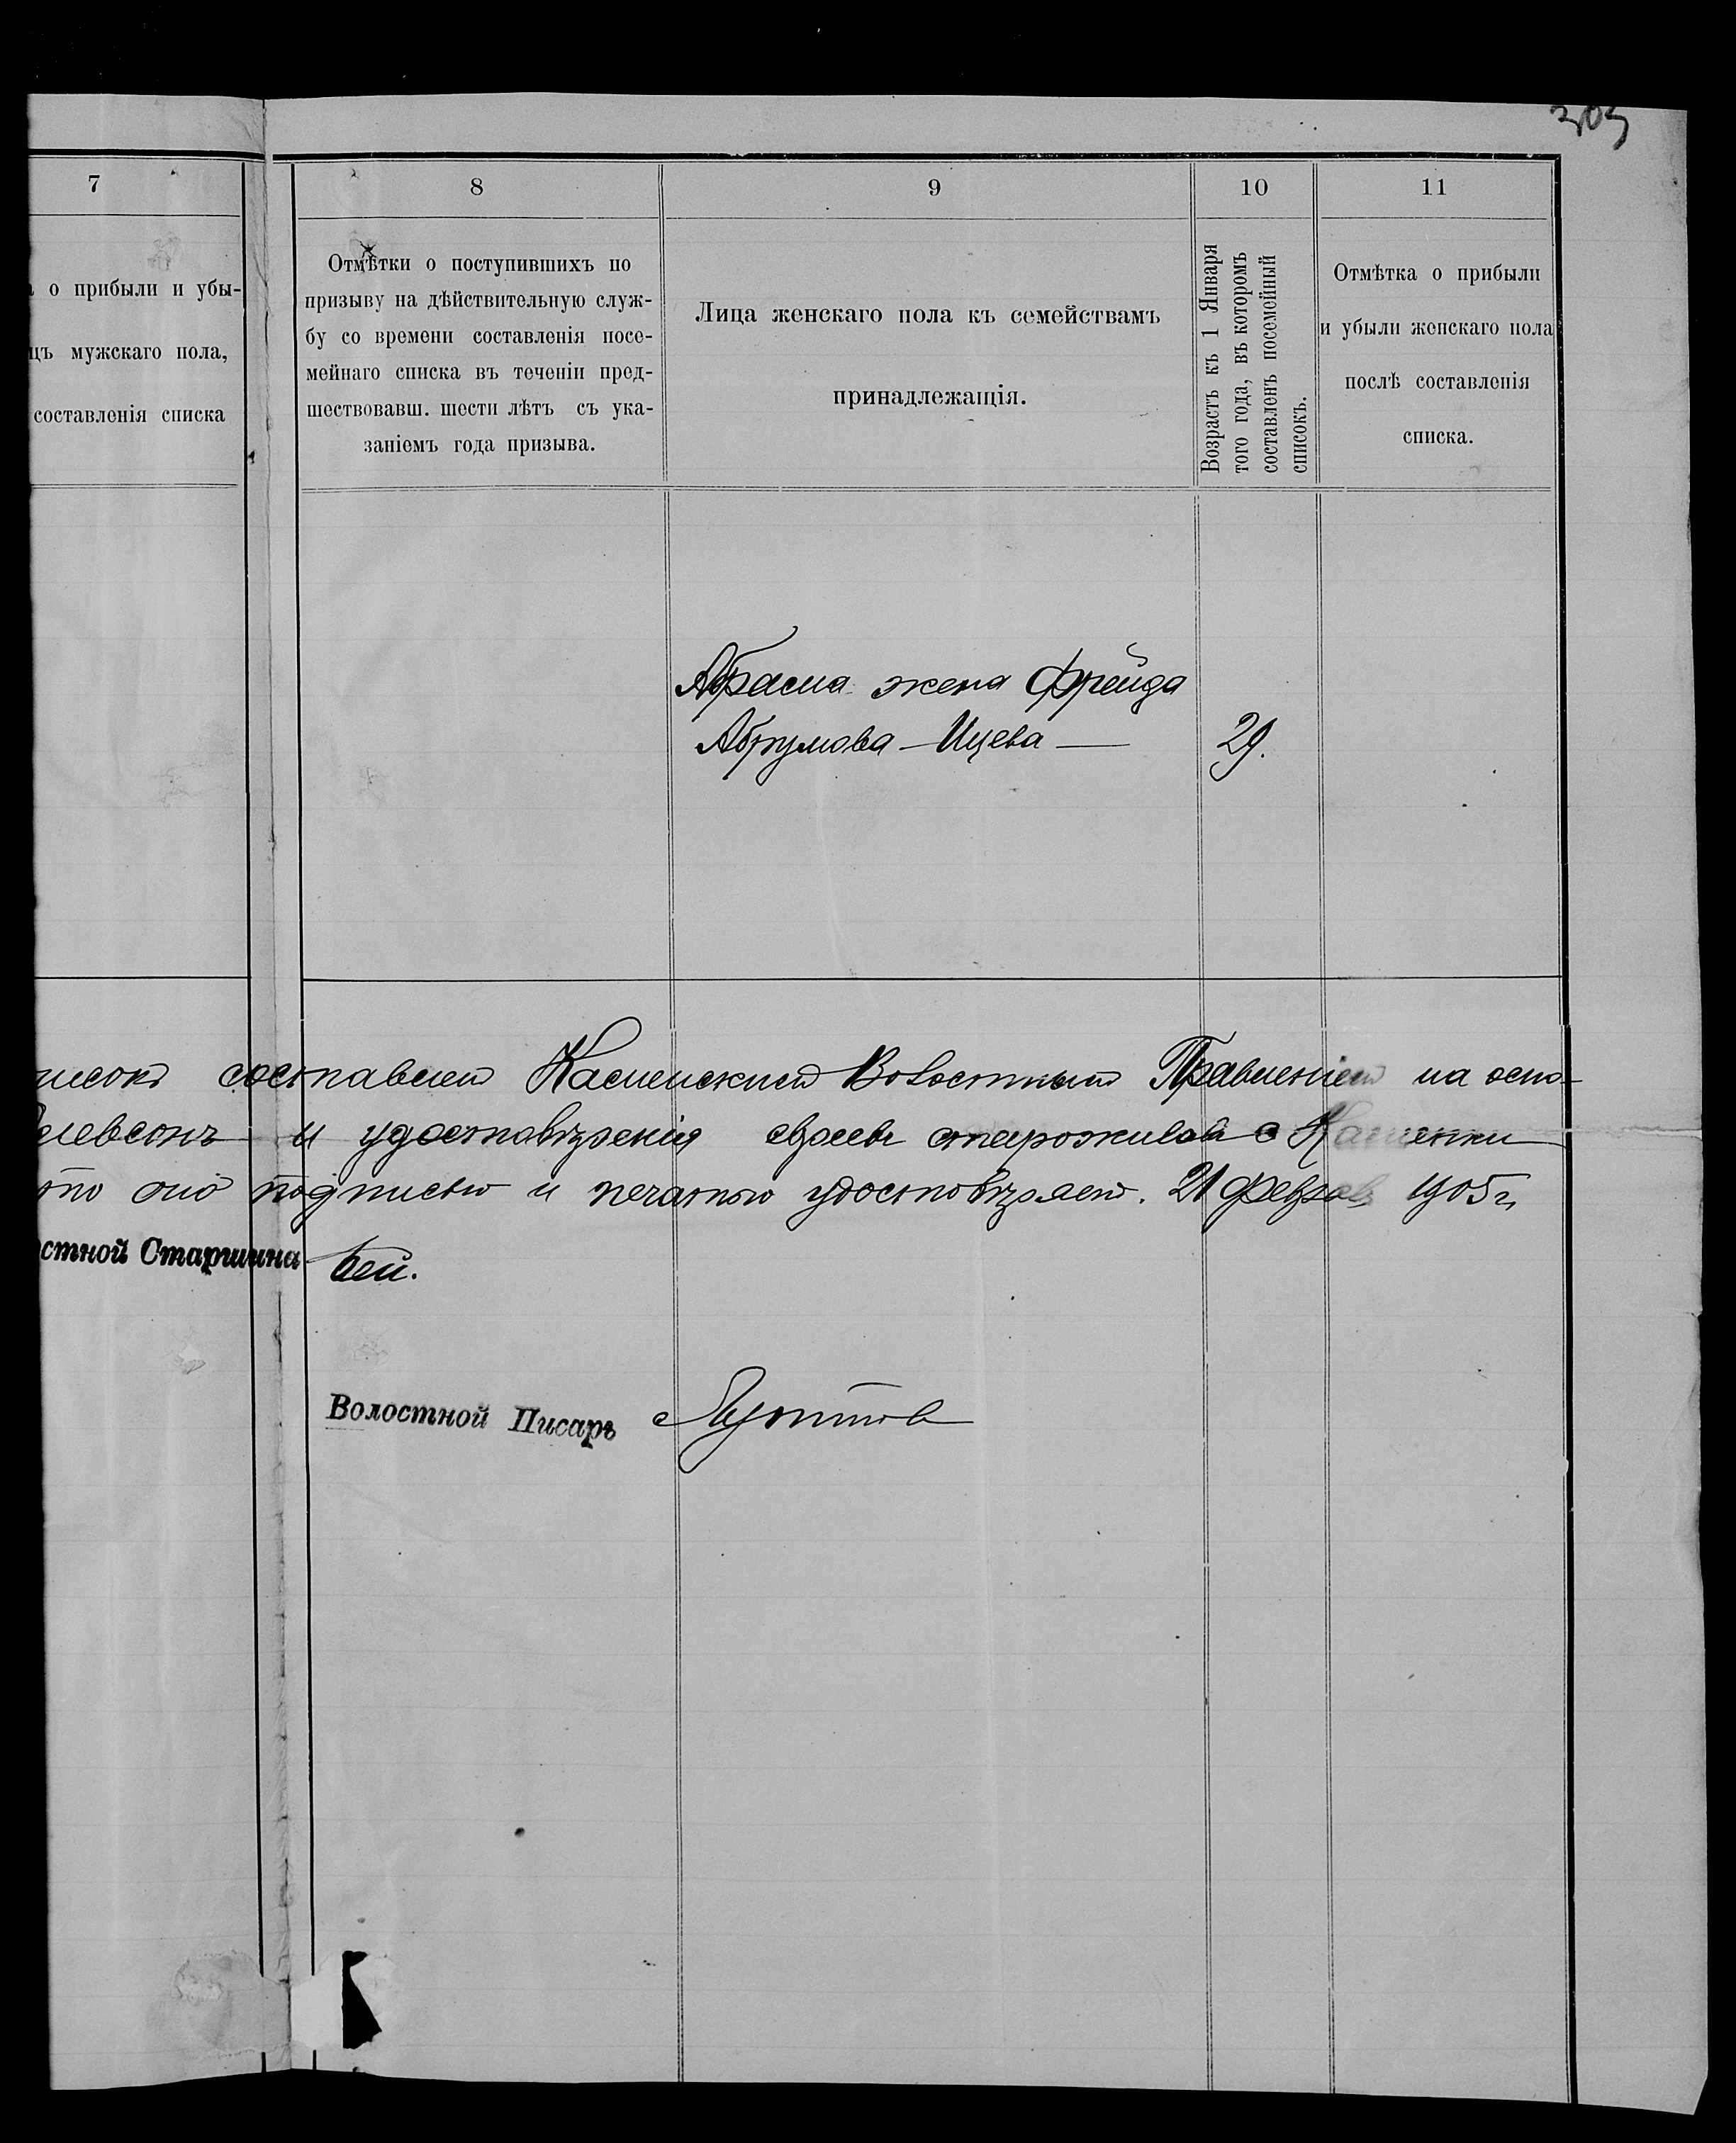 303
7
8
9
10
11
о прибыли и убы-
цъ мужскаго пола,
составленія списка
Отмѣтки о поступившихъ по
призыву на дѣйствительную служ-
бу со времени составленія посе-
мейнаго списка въ теченіи пред-
шествовавш. шести лѣтъ съ ука-
заніемъ года призыва.
Лица женскаго пола къ семействамъ
принадлежащія.
Возрастъ къ 1 Января
того года, въ которомъ
составленъ посемейный
списокъ.
Отмѣтка о прибыли
и убыли женскаго пола
послѣ составленія
списка.
Абрама жена Фрейда
Абрумова-Ицева — 29.
писокъ составленъ Каменскимъ Волостнымъ Правленіемъ на осно-
левсонъ и удостовѣренія старожиловъ с Каменки
что оно подписью и печатью удостовѣряетъ. 21 Февраля 1905 г,
остной Старшина
Волостной Писарь